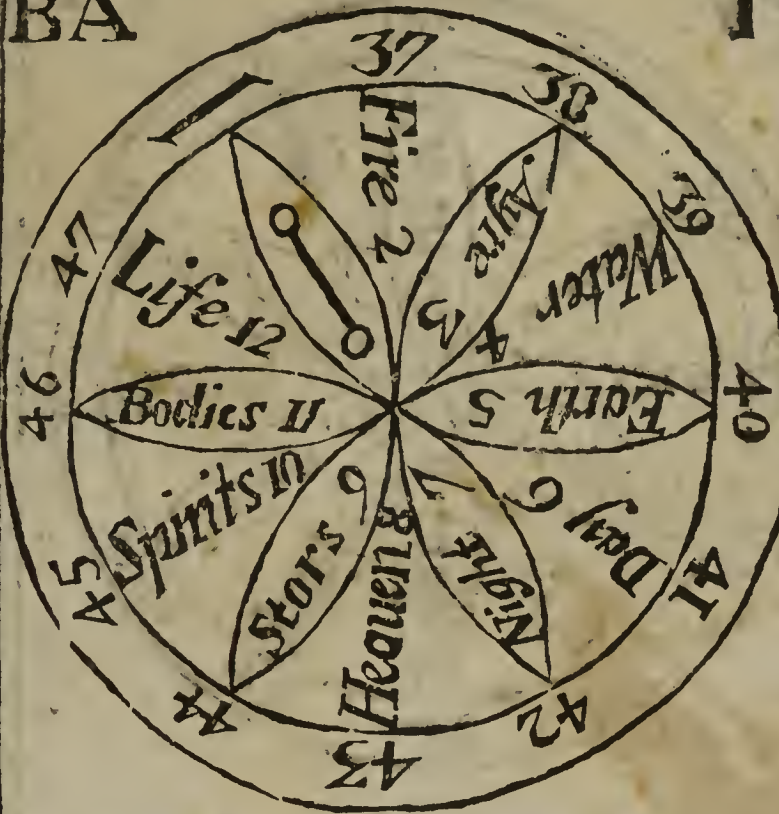 BA
37
38
39
40
41
42
43
44
45
46
47
Fire 2
Ayre 3
Water 4
Earth 5
Day 6
Night 7
Heauen 8
Stors 9
Spirits 10
Bodies 11
Life 12